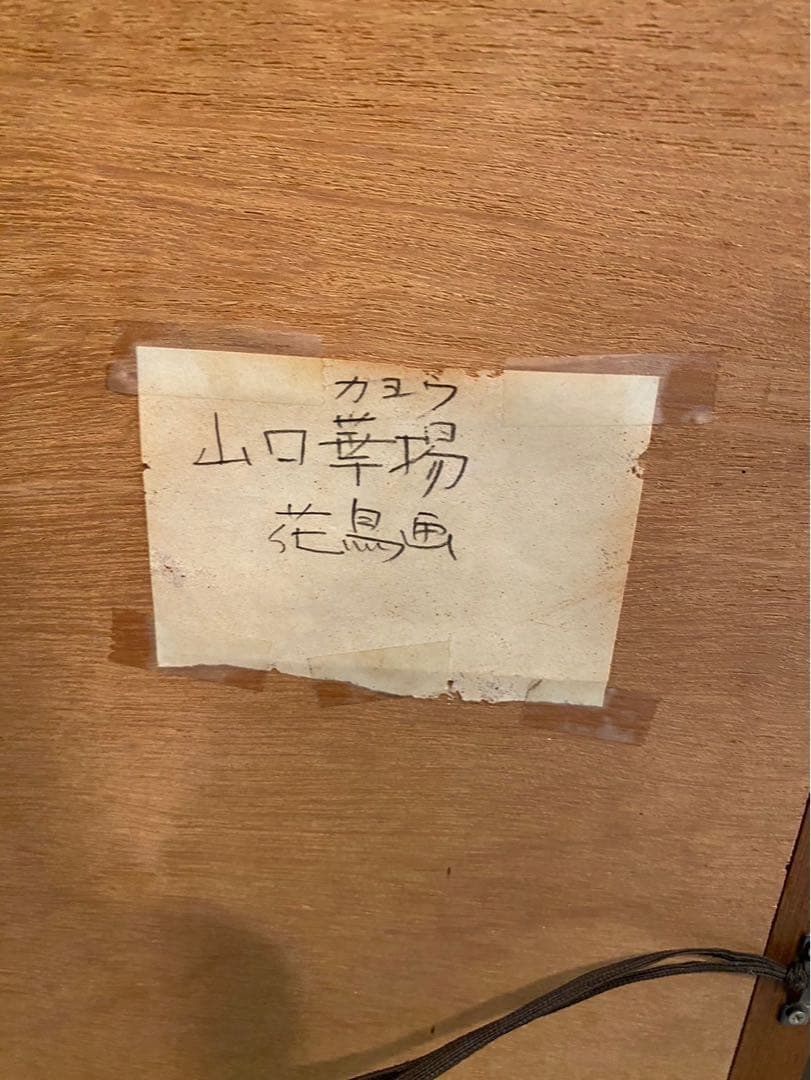 カヨウ
山口華場
花鳥画